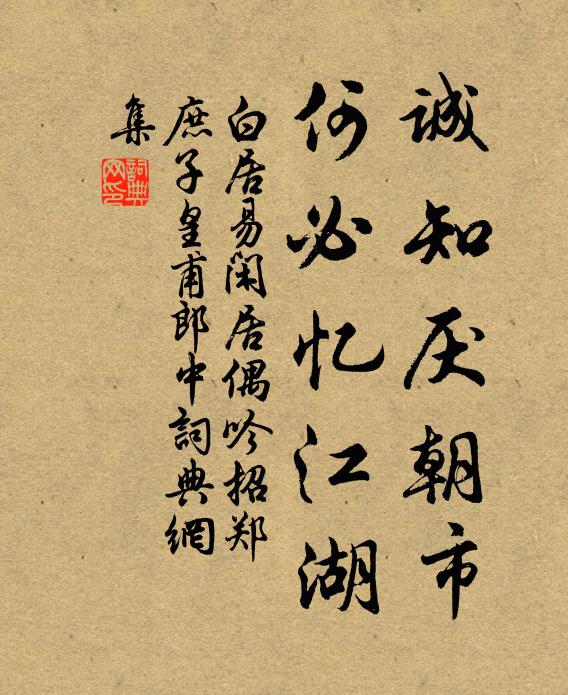 誠知厌朝市
何必忆江湖
白居易闲居偶吟招郑
庶子皇甫郎中詞典網
集
詞典
网印